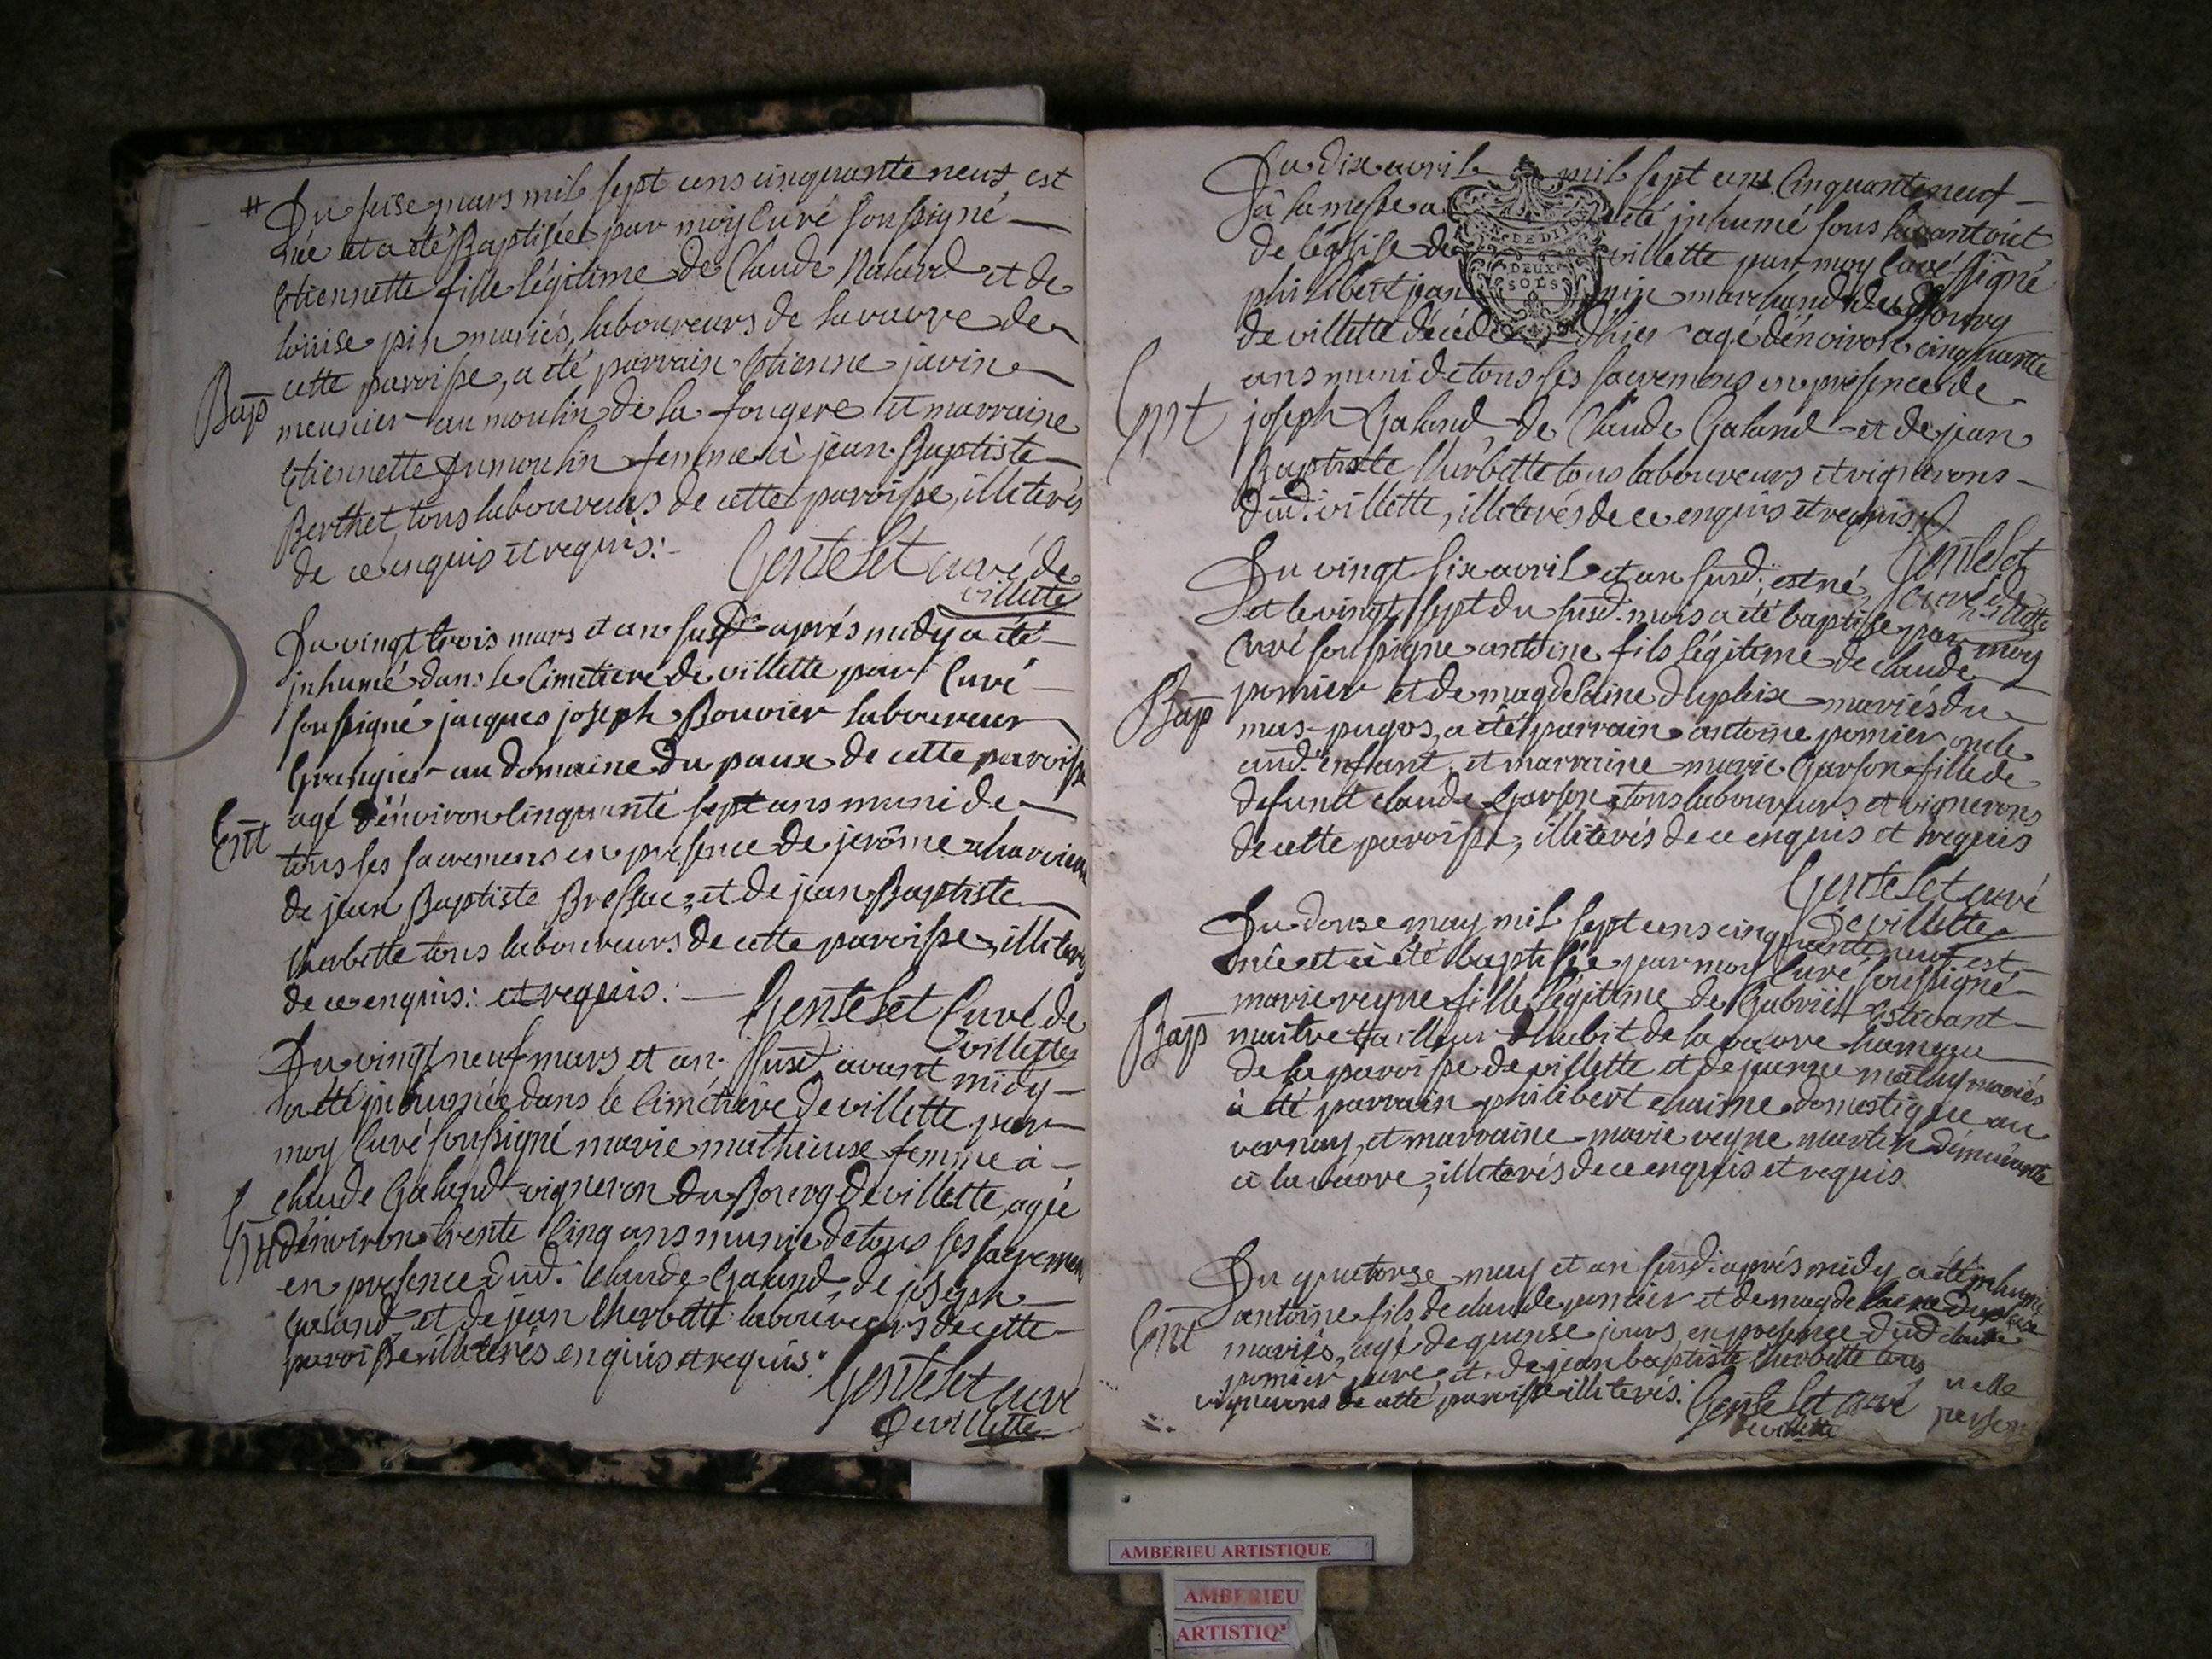 Du seise mars mil sept cens cinquante neuf est
née et a été Baptisée par moy Curé soussigné
Etiennette fille légitime de Claude et de
loüise pin mariés, laboureurs de la vavre de
cette paroisse, a été parrain Etienne javin
Bap
meunier au moulin de la fougere et marraine
Etiennette Dumoulin femme à jean Baptiste
Berthet tous laboureurs de cette paroisse, illiterés
de ce enquis et requis :
Gentelet curé de
villette
Du vingt trois mars et an susd. aprés midy a été
jnhumé dans le Cimetiere de villette par Curé
soussigné jacques joseph Bouvier laboureur
Grangier au domaine Du paux de cette paroisse
agé d'énviron Cinquante sept ans muni de
Ent
tous ses sacremens en presence de jerôme
de jean Baptiste Bressac, et de jean Baptiste
Cherbette tous laboureurs de cette paroisse, illiterés
de ce enquis : et requis :
Gentelet Curé de
villette
Du vingt neuf mars et an susd. avant midy
a été jnhumée dans le Cimétière de villette par
moy Curé soussigné marie mathieuse femme à
claude Galand vigneron Du Bourg De villette, agée
Ent
d'énviron trente Cinq ans munie de tous ses sacremens
en presence dud. Claude Galand, de joseph
Galand et de jean Cherbette laboureurs de cette
paroisse illiterés enquis et requis.
Gentelet curé
De villette
Du dix avril mil sept cens Cinquante neuf
à la messe a été jnhumé sous
de léglise de villette par moy Curé signé
DEUX
SOLS
philibert jean marchand du Bourg
de villette décédé d'hier agé d'énviron cinquante
ans muni de tous ses sacremens en presence de
Ent
joseph Galand, de Claude Galand et de jean
Baptiste Cherbette tous laboureurs et vignerons
dud. villette, illiterés de ce enquis et requis
Gentelet
curé de villette
Du vingt six avril et an susd. est né
et le vingt sept du susd. mois a été baptisé par moy
Curé soussigné antoine fils légitime de claude
Bap
pomier et de magdelaine dupleix mariés du
mas-pugos, a été parrain antoine pomier oncle
aud. enfant, et marraine marie Garson fille de
defunct claude Garson, tous laboureurs et vignerons
de cette paroisse, illiterés de ce enquis et requis
Gentelet curé
De villette
Du douse may mil sept cens cinquante neuf est
née et a été baptisée par moy Curé soussigné
marie reyne fille légitime de Gabriel Estivant
Bap
maitre tailleur d'habit de la vavre hameau
de la paroisse de villette et de jeanne mariés
a été parrain philibert chaisne domestique au
vernay, et marraine marie reyne martin demeurante
à la vavre, illiterés de ce enquis et requis
Du quatorse may et an susd. aprés midy a été jnhumé
antoine fils de claude pomier et de magdelaine Dupleix
Ent
mariés, agé de quinse jours, en presence dud. claude
pomier pere et de jean baptiste Cherbette tous
vignerons de cette paroisse illiterés.
Gentelet curé
de villette
AMBERIEU ARTISTIQUE
AMBERIEU
ARTISTIQ